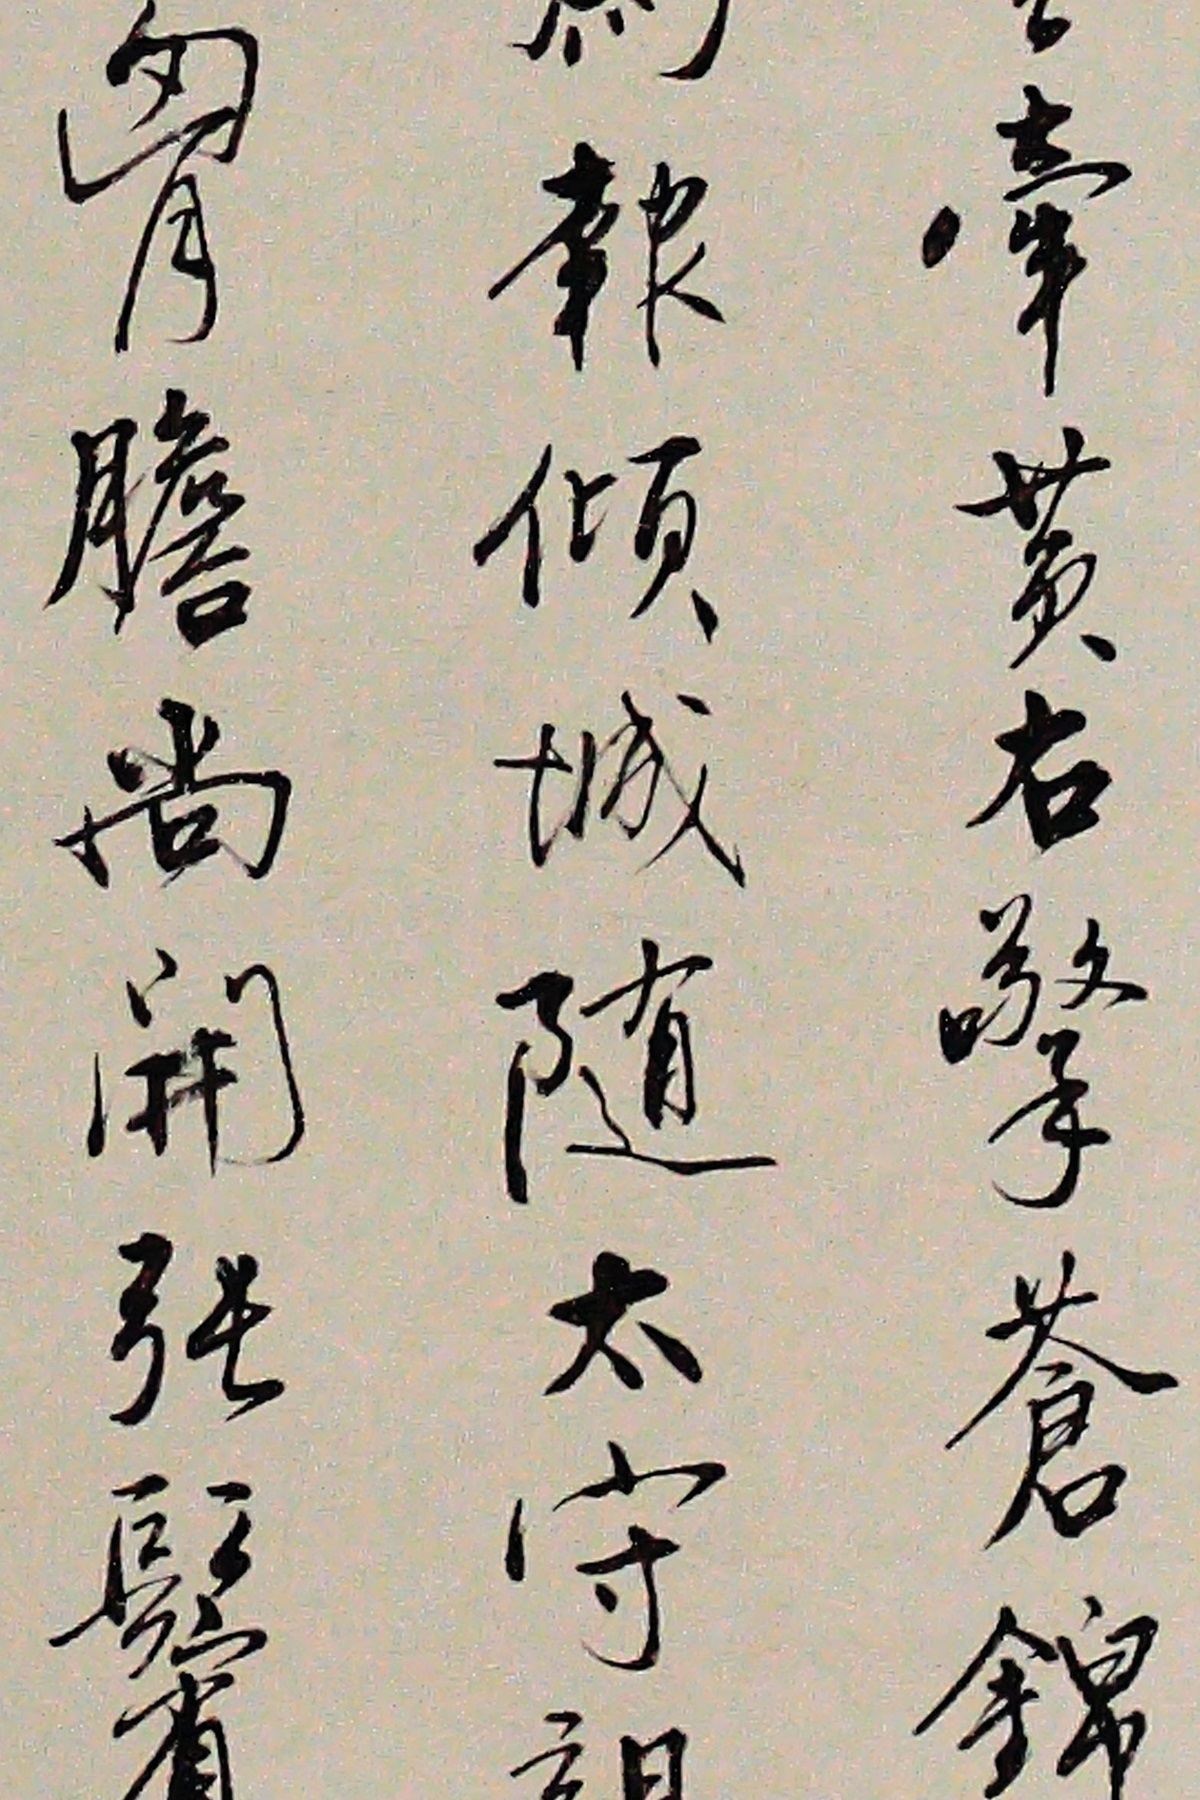 牽黃右擎蒼錦
報傾城随太守
胷膽尚開張鬢